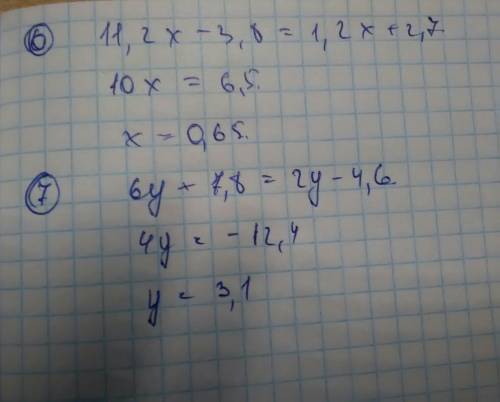 6 11,2x - 3,8 = 1,2x + 2,7
10x = 6,5.
x = 0,65.
7 6y + 7,8 = 2y - 4,6.
4y = -12,4
y = 3,1